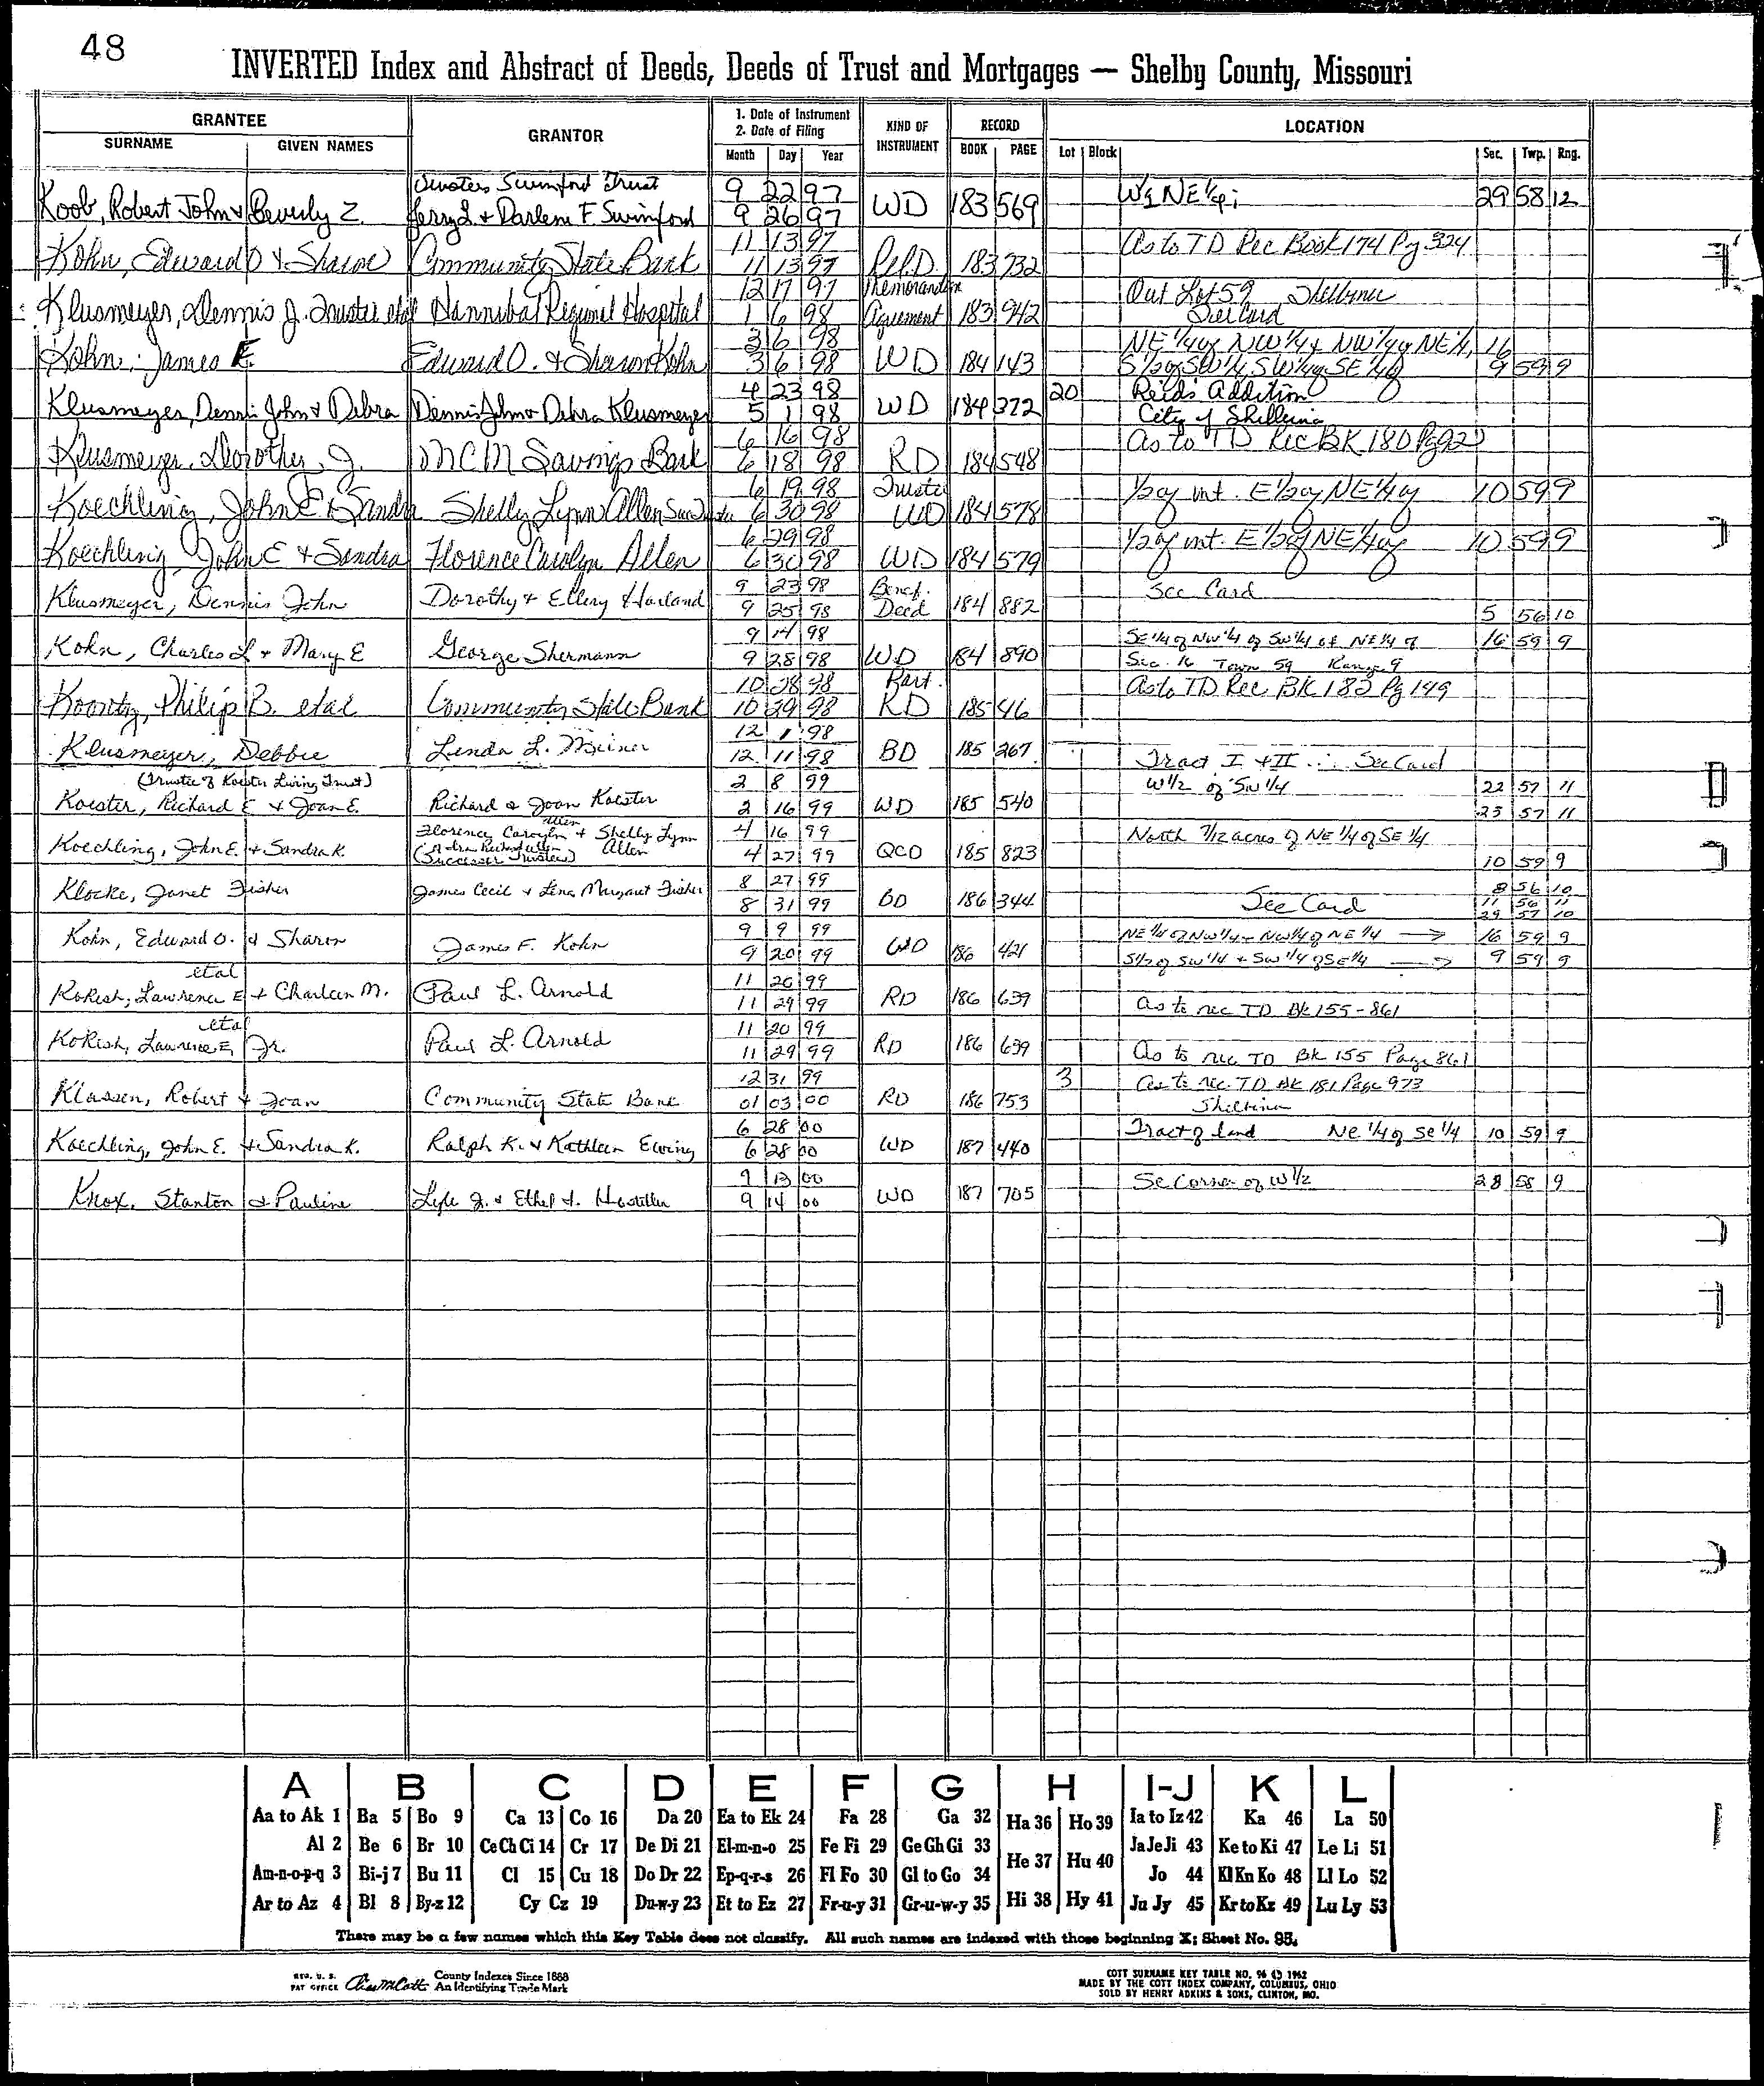 48
INVERTED Index and Abstract of Deeds, Deeds of Trust and Mortgages — Shelby County, Missouri
GRANTEE
SURNAME GIVEN NAMES
GRANTOR
1. Date of Instrument
2. Date of Filing
Month Day Year
KIND OF INSTRUMENT
RECORD
BOOK PAGE
LOCATION
Lot Block Sec. Twp. Rng.
Trustees Swinford Trust 9 22 97
Koob, Robert John & Beverly Z. Jerry L. & Darlene F. Swinford 9 26 97 WD 183 569 W½ NE¼; 29 58 12
11 13 97 As to TD Rec Book 174 Pg 324
Kohn, Edward O & Sharon Community State Bank 11 13 97 Rel.D. 183 732
12 17 97 Memorandum Out Lot 59 Shelbyna
Klusmeyer, Dennis J. Trustee etal Hannibal Regional Hospital 1 6 98 Agreement 183 942 See Card
3 6 98 NE 1/4 of NW 1/4 & NW 1/4 of NE 1/4, 16
Kohn, James F. Edward O. & Sharon Kohn 3 6 98 WD 184 143 S 1/2 of SW 1/4, SW 1/4 of SE 1/4 of 9 59 9
4 23 98 20 Reids Addition
Klusmeyer, Dennis John & Debra Dennis John & Debra Klusmeyer 5 1 98 WD 184 372 City of Shelbina
6 16 98 As to TD Rec BK 180 Pg 920
Klusmeyer, Dorothy J. MCM Savings Bank 6 18 98 RD 184 548
6 19 98 Trustee 1/2 of int. E 1/2 of NE 1/4 of 10 59 9
Koechling, John E & Sandra Shelly Lynn Allen 6 30 98 WD 184 578
6 29 98 1/2 of int. E 1/2 of NE 1/4 of 10 59 9
Koechling, John E & Sandra Florence Carolyn Allen 6 30 98 WD 184 579
9 23 98 Benef. See Card
Klusmeyer, Dennis John Dorothy & Ellery Harland 9 25 98 Deed 184 882 5 56 10
9 14 98 SE 1/4 of NW 1/4 of SW 1/4 of NE 1/4 of 16 59 9
Kohn, Charles L & Mary E George Shermann 9 28 98 WD 184 890 Sec. 16 Town 59 Range 9
10 28 98 Part. As to TD Rec BK 182 Pg 149
Koontz, Philip B. etal Community State Bank 10 29 98 RD 185 46
12 1 98
Klusmeyer, Debbie Linda L. 12 11 98 BD 185 267 Tract I & II See Card
(Trustee of Koester Living Trust) 2 8 99 W 1/2 of SW 1/4 22 57 11
Koester, Richard E & Joan E. Richard & Joan Koester 2 16 99 WD 185 540 23 57 11
Florence Carolyn Allen & Shelly Lynn Allen 4 16 99 North 7/12 acres of NE 1/4 of SE 1/4
Koechling, John E. & Sandra K. (Successor Trustee) 4 27 99 QCD 185 823 10 59 9
8 27 99 8 56 10
Klocke, Janet Fisher James Cecil & Lena Margaret Fisher 8 31 99 BD 186 344 See Card 11 56 11
29 57 10
9 9 99 NE 1/4 of NW 1/4 & NW 1/4 of NE 1/4 → 16 59 9
Kohn, Edward O. & Sharon James F. Kohn 9 20 99 WD 186 421 S 1/2 of SW 1/4 & SW 1/4 of SE 1/4 → 9 59 9
etal 11 26 99
Kokesh, Lawrence E & Charleen M. Paul L. Arnold 11 29 99 RD 186 639 As to rec TD Bk 155-861
etal 11 20 99
Kokesh, Lawrence E, Jr. Paul L. Arnold 11 29 99 RD 186 639 As to rec TD Bk 155 Page 861
12 31 99 3 As to rec. TD Bk 181 Page 973
Klassen, Robert & Joan Community State Bank 01 03 00 RD 186 753 Shelbina
6 28 00 Tract of land NE 1/4 of SE 1/4 10 59 9
Koechling, John E. & Sandra K. Ralph K. & Kathleen Ewing 6 28 00 WD 187 440
9 13 00 SE Corner of W 1/2 28 58 9
Knox, Stanton & Pauline Lyle J. & Ethel I. Hostetler 9 14 00 WD 187 705
A B C D E F G H I-J K L
Aa to Ak 1 Ba 5 Bo 9 Ca 13 Co 16 Da 20 Ea to Ek 24 Fa 28 Ga 32 Ha 36 Ho 39 Ia to Iz 42 Ka 46 La 50
Al 2 Be 6 Br 10 Ce Ch Ci 14 Cr 17 De Di 21 El-m-n-o 25 Fe Fi 29 Ge Gh Gi 33 He 37 Hu 40 Ja Je Ji 43 Ke to Ki 47 Le Li 51
Am-n-o-p-q 3 Bi-j 7 Bu 11 Cl 15 Cu 18 Do Dr 22 Ep-q-r-s 26 Fl Fo 30 Gl to Go 34 Jo 44 Kl Kn Ko 48 Ll Lo 52
Ar to Az 4 Bl 8 By-z 12 Cy Cz 19 Du-w-y 23 Et to Ez 27 Fr-u-y 31 Gr-u-w-y 35 Hi 38 Hy 41 Ju Jy 45 Kr to Kz 49 Lu Ly 53
There may be a few names which this Key Table does not classify. All such names are indexed with those beginning X; Sheet No. 95.
REG. U. S. PAT OFFICE County Indexes Since 1888
An Identifying Trade Mark
COTT SURNAME KEY TABLE NO. 96 © 1962
MADE BY THE COTT INDEX COMPANY, COLUMBUS, OHIO
SOLD BY HENRY ADKINS & SONS, CLINTON, MO.